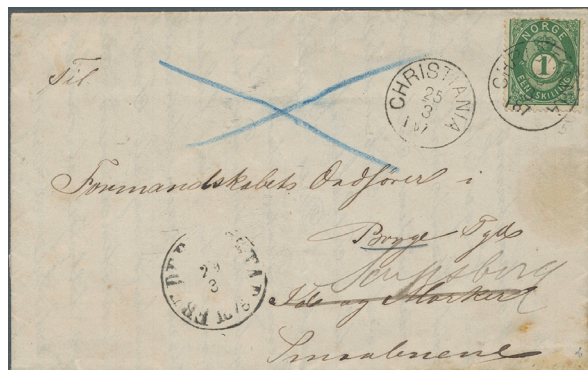 Til
CHRISTIANIA
25
3
NORGE
1
EEN SKILLING
Formandskabets Ordfører i
Brygge
Sarpsborg
Ide og Marker
Smaalenene
29
3